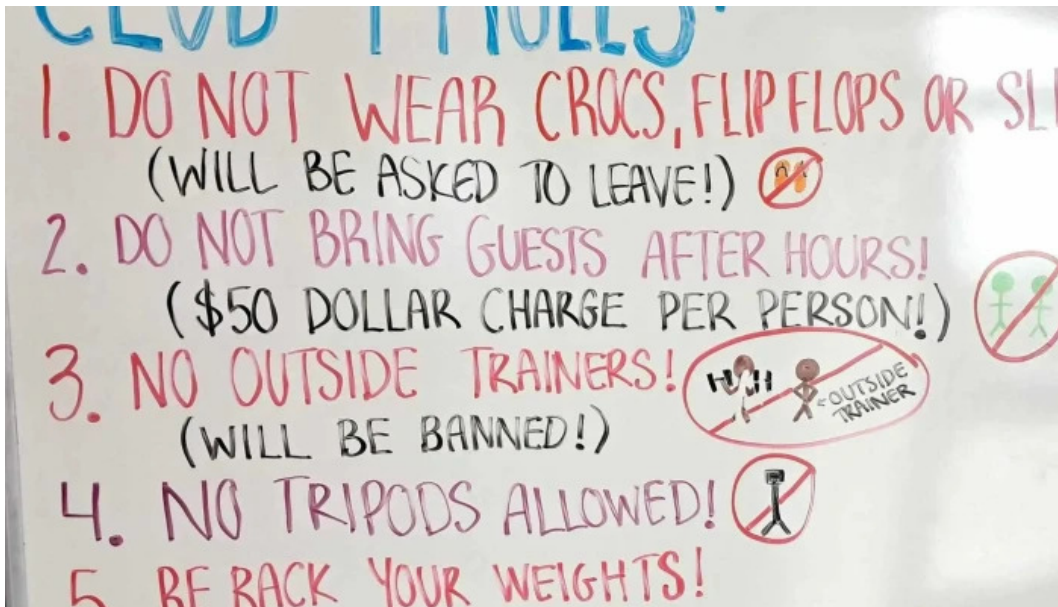 CLUB RULES:
1. DO NOT WEAR CROCS, FLIP FLOPS OR
(WILL BE ASKED TO LEAVE!)
2. DO NOT BRING GUESTS AFTER HOURS!
($50 DOLLAR CHARGE PER PERSON!)
3. NO OUTSIDE TRAINERS!
OUTSIDE
TRAINER
(WILL BE BANNED!)
4. NO TRIPODS ALLOWED!
5. RE RACK YOUR WEIGHTS!